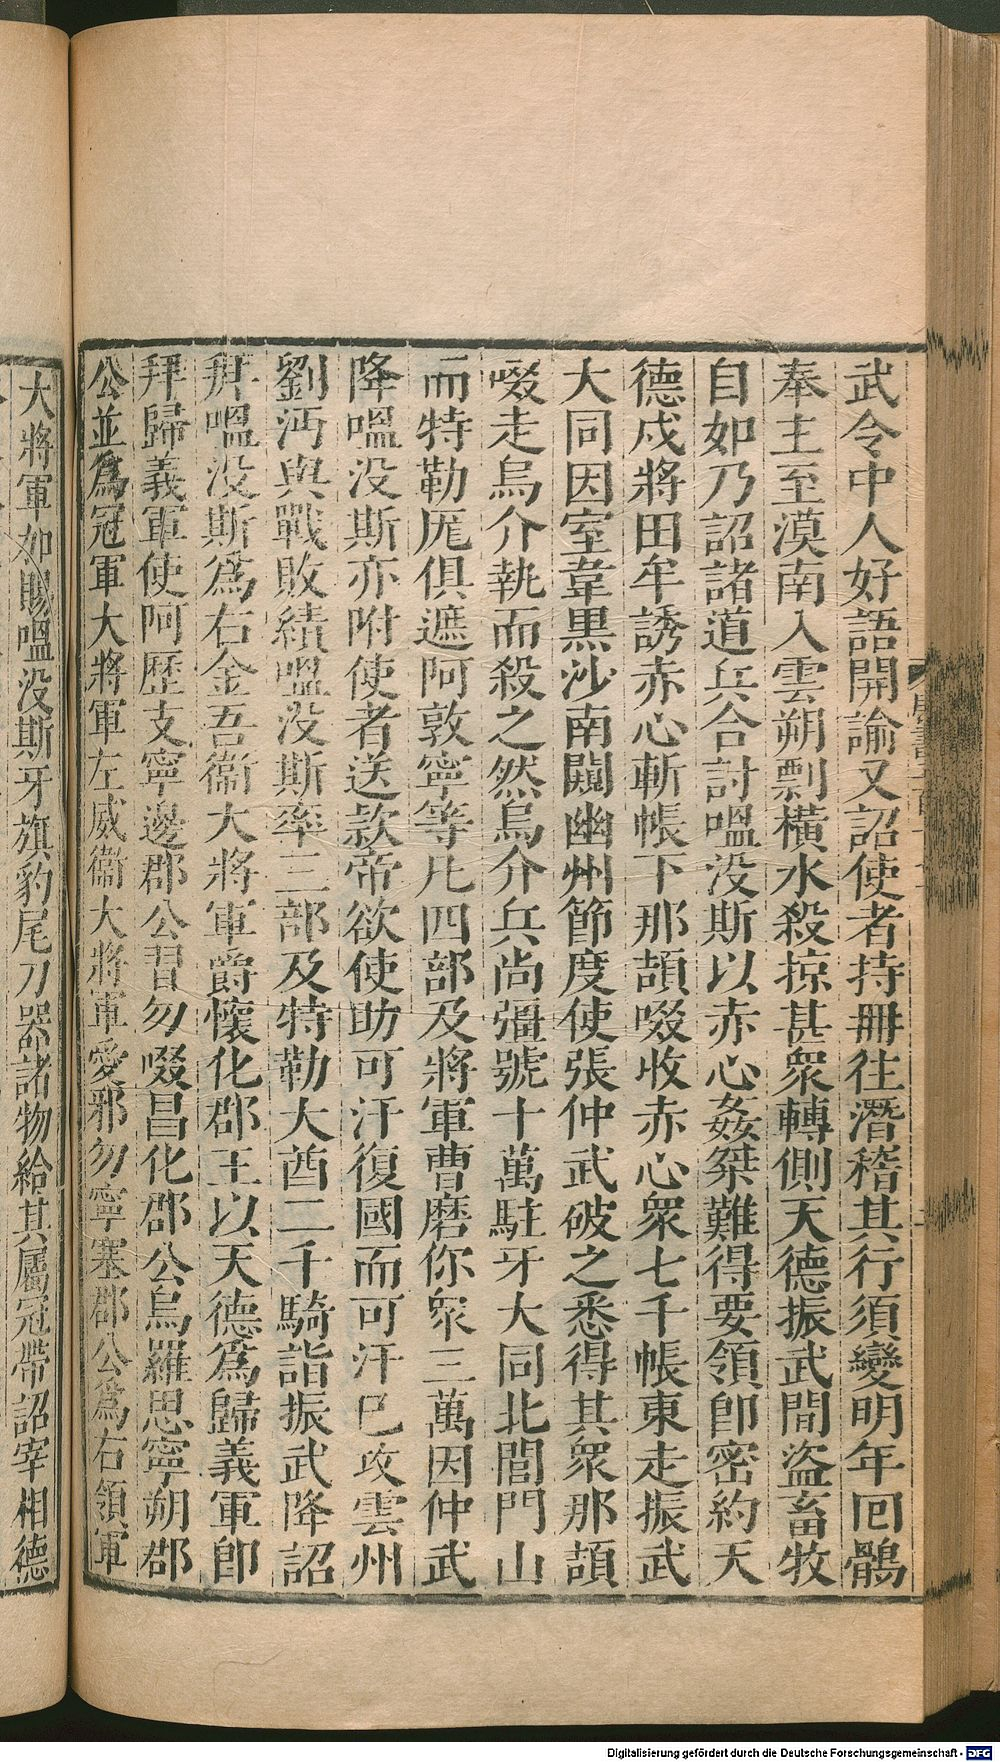 武令中人好語開諭又詔使者持冊往潛稽其行須變明年回鶻
奉主至漠南入雲朔剽橫水殺掠甚衆轉側天德振武間盜畜牧
自如乃詔諸道兵合討嗢没斯以赤心姦桀難得要領卽密約天
德戍將田牟誘赤心斬帳下那頡啜收赤心衆七千帳東走振武
大同因室韋黑沙南闚幽州節度使張仲武破之悉得其衆那頡
啜走烏介執而殺之然烏介兵尚彊號十萬駐牙大同北閭門山
而特勒厖俱遮阿敦寧等凡四部及將軍曹磨你衆三萬因仲武
降嗢没斯亦附使者送款帝欲使助可汗復國而可汗已攻雲州
劉沔與戰敗績嗢没斯率三部及特勒大酋二千騎詣振武降詔
拜嗢没斯爲右金吾衞大將軍爵懷化郡王以天德爲歸義軍卽
拜歸義軍使阿歷支寧邊郡公習勿啜昌化郡公烏羅思寧朔郡
公並爲冠軍大將軍左威衞大將軍愛邪勿寧塞郡公爲右領軍
大將軍如賜嗢没斯牙旗豹尾刀器諸物給其屬冠帶詔宰相德
Digitalisierung gefördert durch die Deutsche Forschungsgemeinschaft - DFG